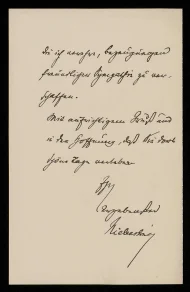 die ich verehre, Bezeugungen
freundlicher Sympathie zu ver-
schaffen.
Mit aufrichtigem Gruß und
in der Hoffnung, daß Sie dort
schöne Tage verleben
Ihr
ergebenster